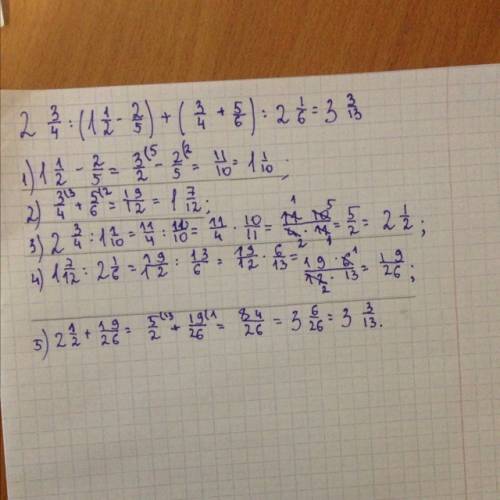 2 3/4 : (1 1/2 - 2/5) + (3/4 + 5/6) : 2 1/6 = 3 3/13
1) 1 1/2 - 2/5 = 3/2 (5 - 2/5 (2 = 11/10 = 1 1/10;
2) 3/4 (3 + 5/6 (2 = 19/12 = 1 7/12;
3) 2 3/4 : 1 1/10 = 11/4 : 11/10 = 11/4 · 10/11 = 11 · 10/4 · 11 = 5/2 = 2 1/2;
4) 1 7/12 : 2 1/6 = 19/12 : 13/6 = 19/12 · 6/13 = 19 · 6/12 · 13 = 19/26;
5) 2 1/2 + 19/26 = 5/2 (13 + 19/26 (1 = 84/26 = 3 6/26 = 3 3/13.